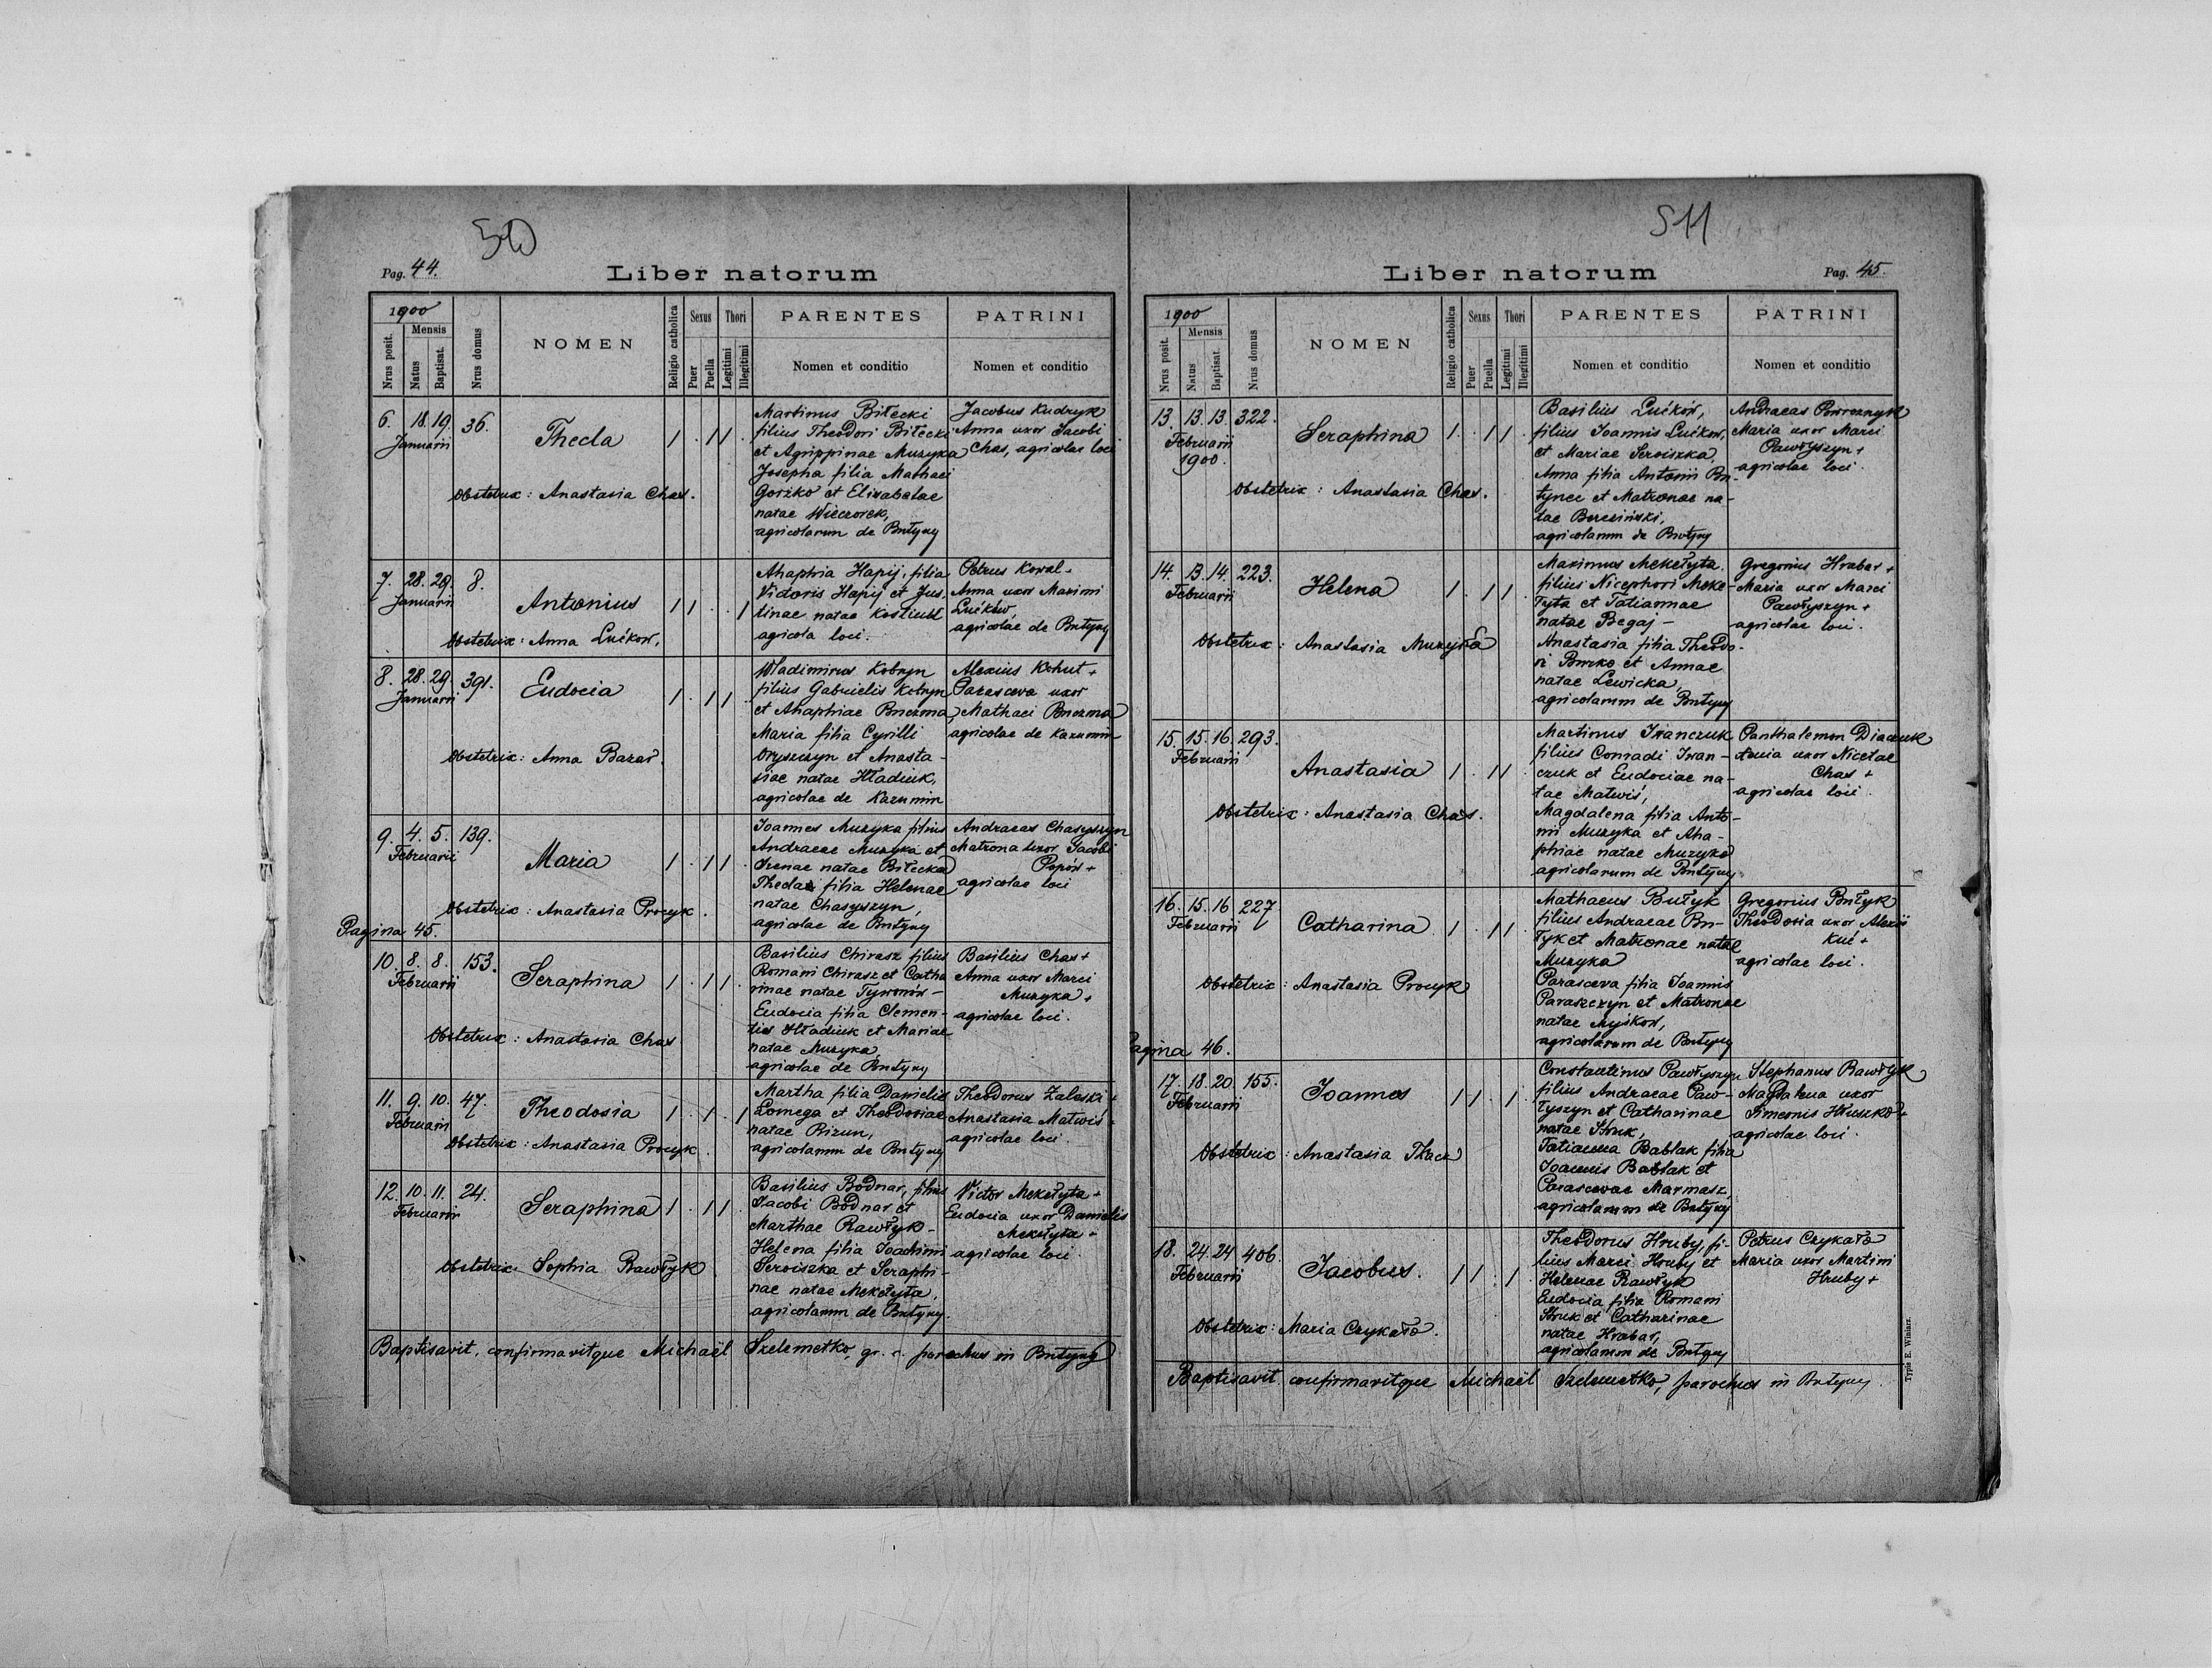 50
Pag. 44.
Liber natorum
1900
Nrus posit.
Mensis
Natus
Baptisat.
Nrus domus
NOMEN
Religio catholica
Sexus
Puer
Puella
Thori
Legitimi
Illegitimi
PARENTES
Nomen et conditio
PATRINI
Nomen et conditio
6. 18. 19. 36.
Januarii
Thecla
1 . 1 1 .
Obstetrix: Anastasia Chas.
Martinus Biłecki
filius Theodori Biłecki
et Agrippinae Muzyka
Josepha filia Mathaei
Gorzko et Elisabetae
natae Wieczorek,
agricolarum de Butyny
Jacobus Kudryk
Anna uxor Jacobi
Chas, agricolae loci
7. 28. 29. 8.
Januarii
Antonius
1 1 . . 1
Obstetrix: Anna Lućkow.
Ahaphia Hapij, filia
Victoris Hapij et Jus-
tinae natae Kostiuk
agricola loci.
Petrus Kowal +
Anna uxor Maximi
Lućków,
agricolae de Butyny
8. 28. 29. 391.
Januarii
Eudocia
1 . 1 1 .
Obstetrix: Anna Bazar.
Wladimirus Kobryn
filius Gabrielis Kobryn
et Ahaphiae Buczma,
Maria filia Cyrilli
Oryszczyn et Anasta-
siae natae Hładiuk,
agricolae de Kazumin
Alexius Kohut +
Parasceva uxor
Mathaei Buczma
agricolae de Kazumin
9. 4. 5. 139.
Februarii
Maria
1 . 1 1 .
Obstetrix: Anastasia Procyk.
Joannes Muzyka filius
Andraeae Muzyka et
Irenae natae Biłecka
Thecla filia Helenae
natae Chasyszyn,
agricolae de Butyny
Andraeas Chasyszyn
Matrona uxor Jacobi
Popów +
agricolae loci
Pagina 45.
10. 8. 8. 153.
Februarii
Seraphina
1 . 1 1 .
Obstetrix: Anastasia Chas
Basilius Chirasz filius
Romani Chirasz et Catha
rinae natae Tywonów -
Eudocia filia Clemen-
tis Hładiuk et Mariae
natae Muzyka,
agricolae de Butyny
Basilius Chas +
Anna uxor Marci
Muzyka +
agricolae loci.
11. 9. 10. 47.
Februarii
Theodosia
1 . 1 . 1
Obstetrix: Anastasia Procyk.
Martha filia Danielis
Łomega et Theodosiae
natae Bizun,
agricolarum de Butyny
Theodorus Zaleski +
Anastasia Matwiś
agricolae loci.
12. 10. 11. 24.
Februarii
Seraphina
1 . 1 1
Obstetrix Sophia Bawłyk
Basilius Bodnar, filius
Jacobi Bodnar et
Marthae Rawłyk -
Helena filia Joachimi
Serwiszka et Seraphi-
nae natae Mekełyta,
agricolarum de Butyny.
Victor Mekełyta +
Eudocia uxor Danielis
Mekełyta +
agricolae loci.
Baptisavit, confirmavitque Michaël Szelemetko, gr. c. parochus in Butyny
511
Liber natorum
Pag. 45.
1900
Nrus posit.
Mensis
Natus
Baptisat.
Nrus domus
NOMEN
Religio catholica
Sexus
Puer
Puella
Thori
Legitimi
Illegitimi
PARENTES
Nomen et conditio
PATRINI
Nomen et conditio
13. 13. 13. 322.
Februarii
1900.
Seraphina
1 . 1 1 .
Obstetrix: Anastasia Chas.
Basilius Lućków,
filius Joannis Lućkow,
et Mariae Serwiszka.
Anna filia Antonii Bu-
tynec et Matronae na-
tae Bereziński,
agricolarum de Butyny
Andraeas Powroznyk
Maria uxor Marci
Pawłyszyn +
agricolae loci.
14. 13. 14. 223.
Februarii
Helena
1 . 1 1 .
Obstetrix: Anastasia Muzyka
Maximus Mekełyta.
filius Nicephori Meke-
łyta et Tatiannae
natae Begaj -
Anastasia filia Theodo-
ri Burko et Annae
natae Lewicka,
agricolarum de Butyny
Gregorius Hrabar +
Maria uxor Marci
Pawłyszyn +
agricolae loci.
15. 15. 16. 293.
Februarii
Anastasia
1 . 1 1 .
Obstetrix: Anastasia Chas.
Martinus Iwanczuk
filius Conradi Iwan-
czuk et Eudociae na-
tae Matwiś,
Magdalena filia Anto-
nii Muzyka et Aha-
phiae natae Muzyka
agricolarum de Butyny
Panthalemon Diaczuk
Xenia uxor Nicetae
Chas +
agricolae loci.
16. 15. 16 227
Februarii
Catharina
1 . 1 1 .
Obstetrix: Anastasia Procyk
Mathaeus Bułyk
filius Andraeae Bu-
łyk et Matronae natae
Muzyka
Parasceva filia Joannis
Paraszczyn et Matronae
natae Myśkow,
agricolarum de Butyny
Gregorius Bułyk
Theodosia uxor Alexii
Kuć +
agricolae loci.
Pagina 46.
17. 18. 20. 155.
Februarii
Joannes
1 1 . 1 .
Obstetrix: Anastasia Tkacz
Constantinus Pawłyszyn
filius Andraeae Paw-
łyszyn et Catharinae
natae Struk,
Tatianna Bablak filia
Joannis Bablak et
Parascevae Marmasz,
agricolarum de Butyny
Stephanus Bawłyk
Magdalena uxor
Simeonis Hłuszko +
agricolae loci.
18. 24. 24 406.
Februarii
Jacobus.
1 1 . 1 .
Obstetrix: Maria Czykało.
Theodorus Hruby, fi-
lius Marci Hruby et
Helenae Rawłyk
Eudocia filia Romani
Struk et Catharinae
natae Hrabar,
agricolarum de Butyny
Petrus Czykało
Maria uxor Martini
Hruby +
Baptisavit confirmavitque Michaël Szelemetko, parochus in Butyny.
Typis E. Winiarz.